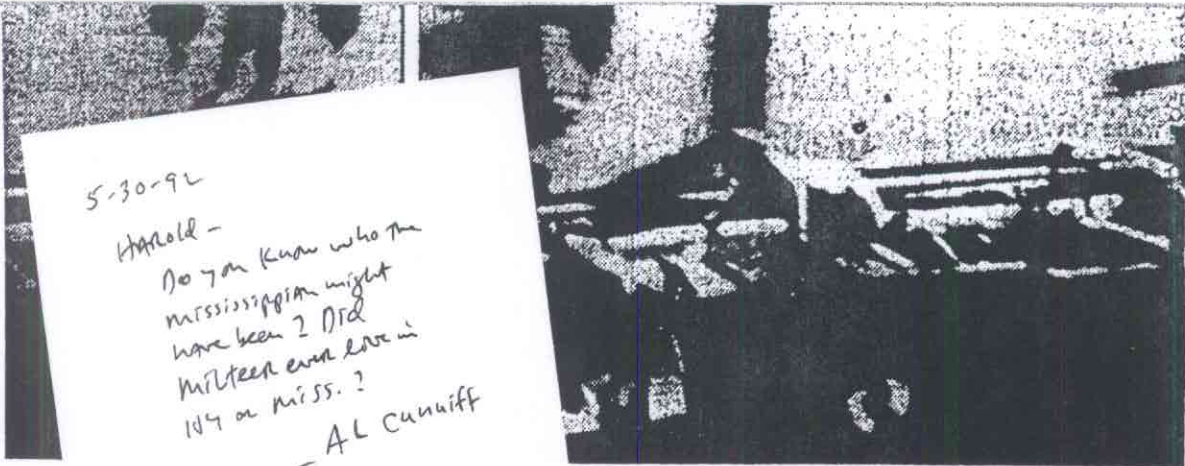 5-30-92
HARold -
Do you Know who the
mississippian might
have been? Did
milteer ever live in
or miss.?
AL Cunniff